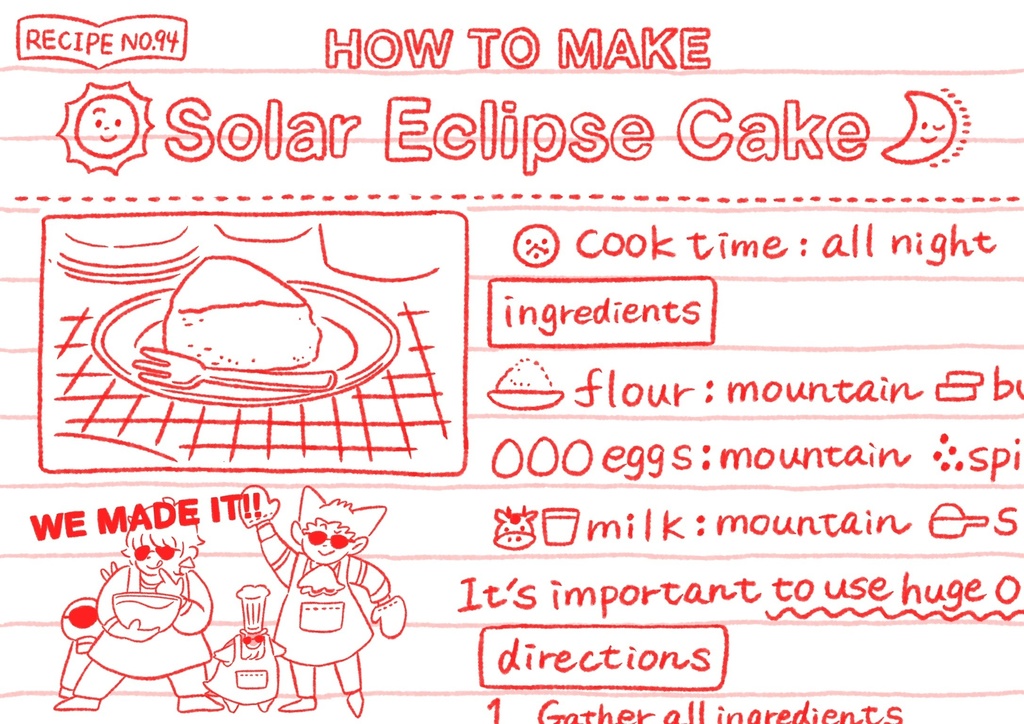 RECIPE NO.94
HOW TO MAKE
Solar Eclipse Cake
Cook time : all night
ingredients
flour : mountain bu
eggs : mountain spi
milk : mountain s
It's important to use huge O
directions
1 Gather all ingredients
WE MADE IT!!